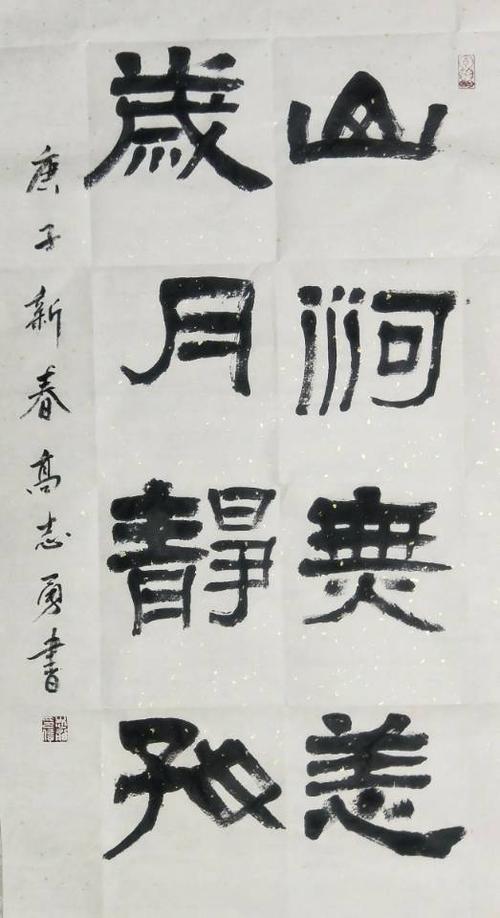 山河無恙
歲月靜好
庚子新春髙志勇書